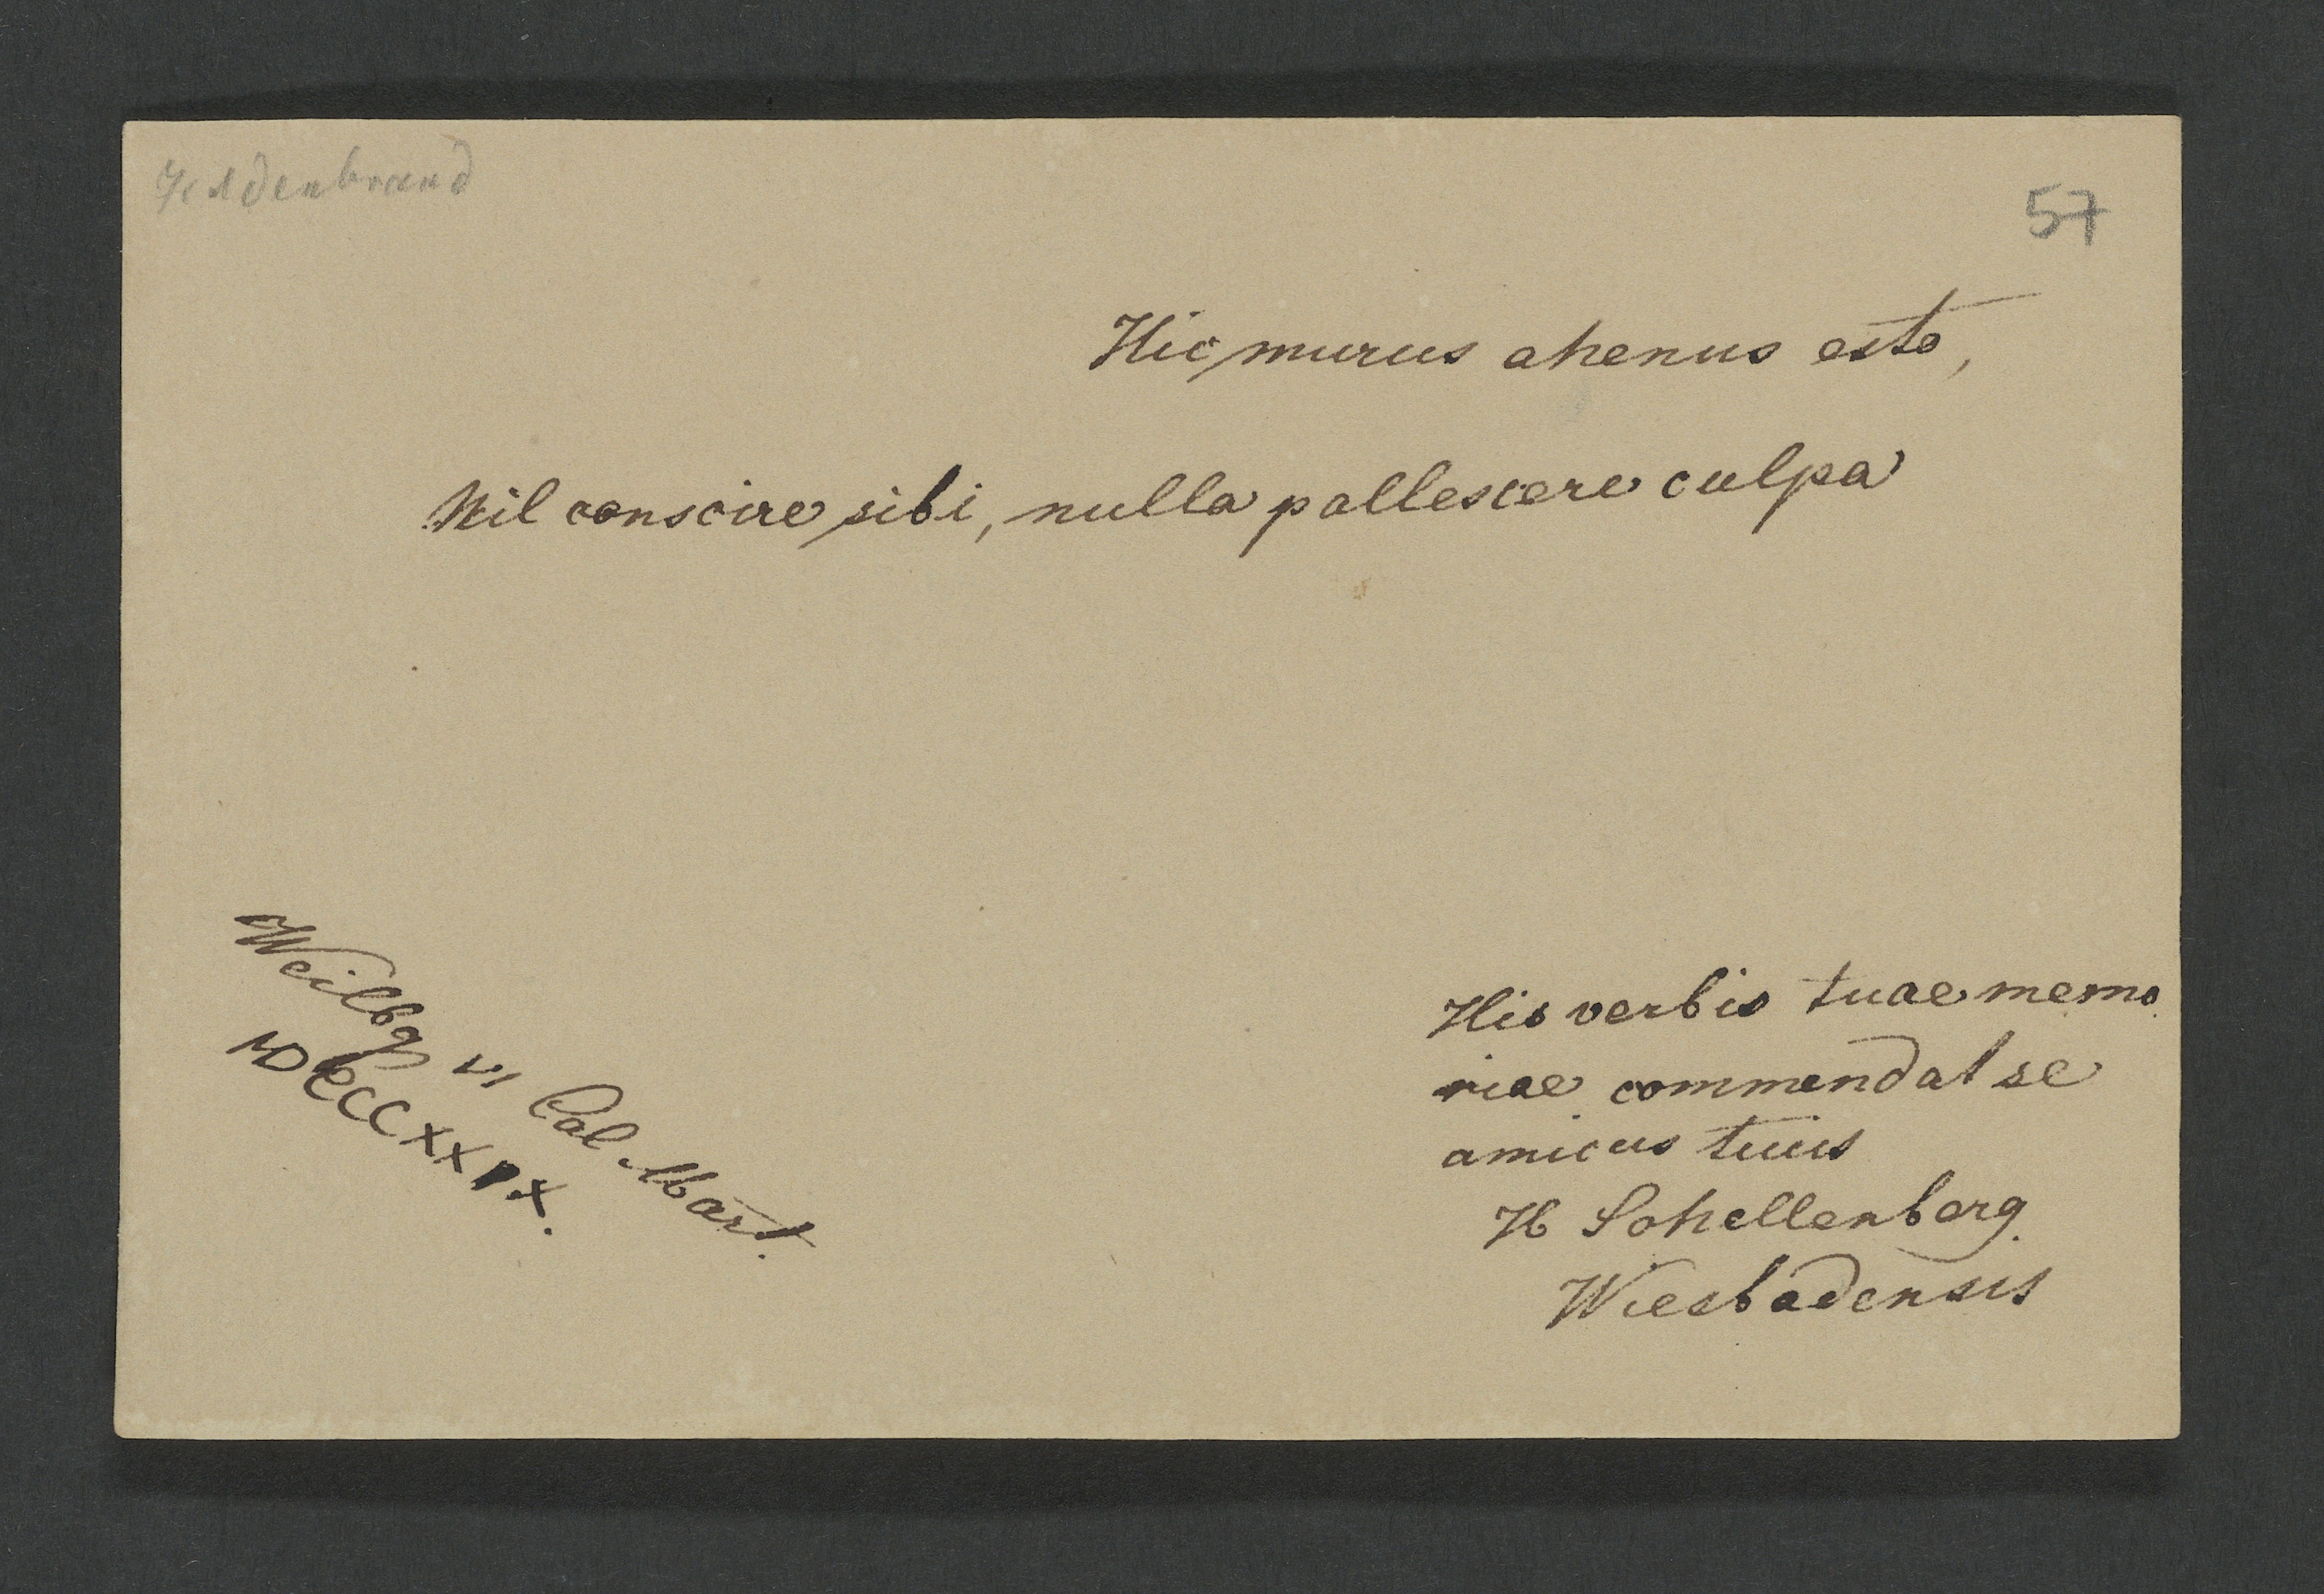 Hildenbrand
57
Hic murus ahenus esto,
Nil conscire sibi, nulla pallescere culpa
His verbis tuae memo
riae commendat se
amicus tuus
H Schellenberg.
Wiesbadensis
Weilbg VI Cal Mart.
MDCCCXXIX.